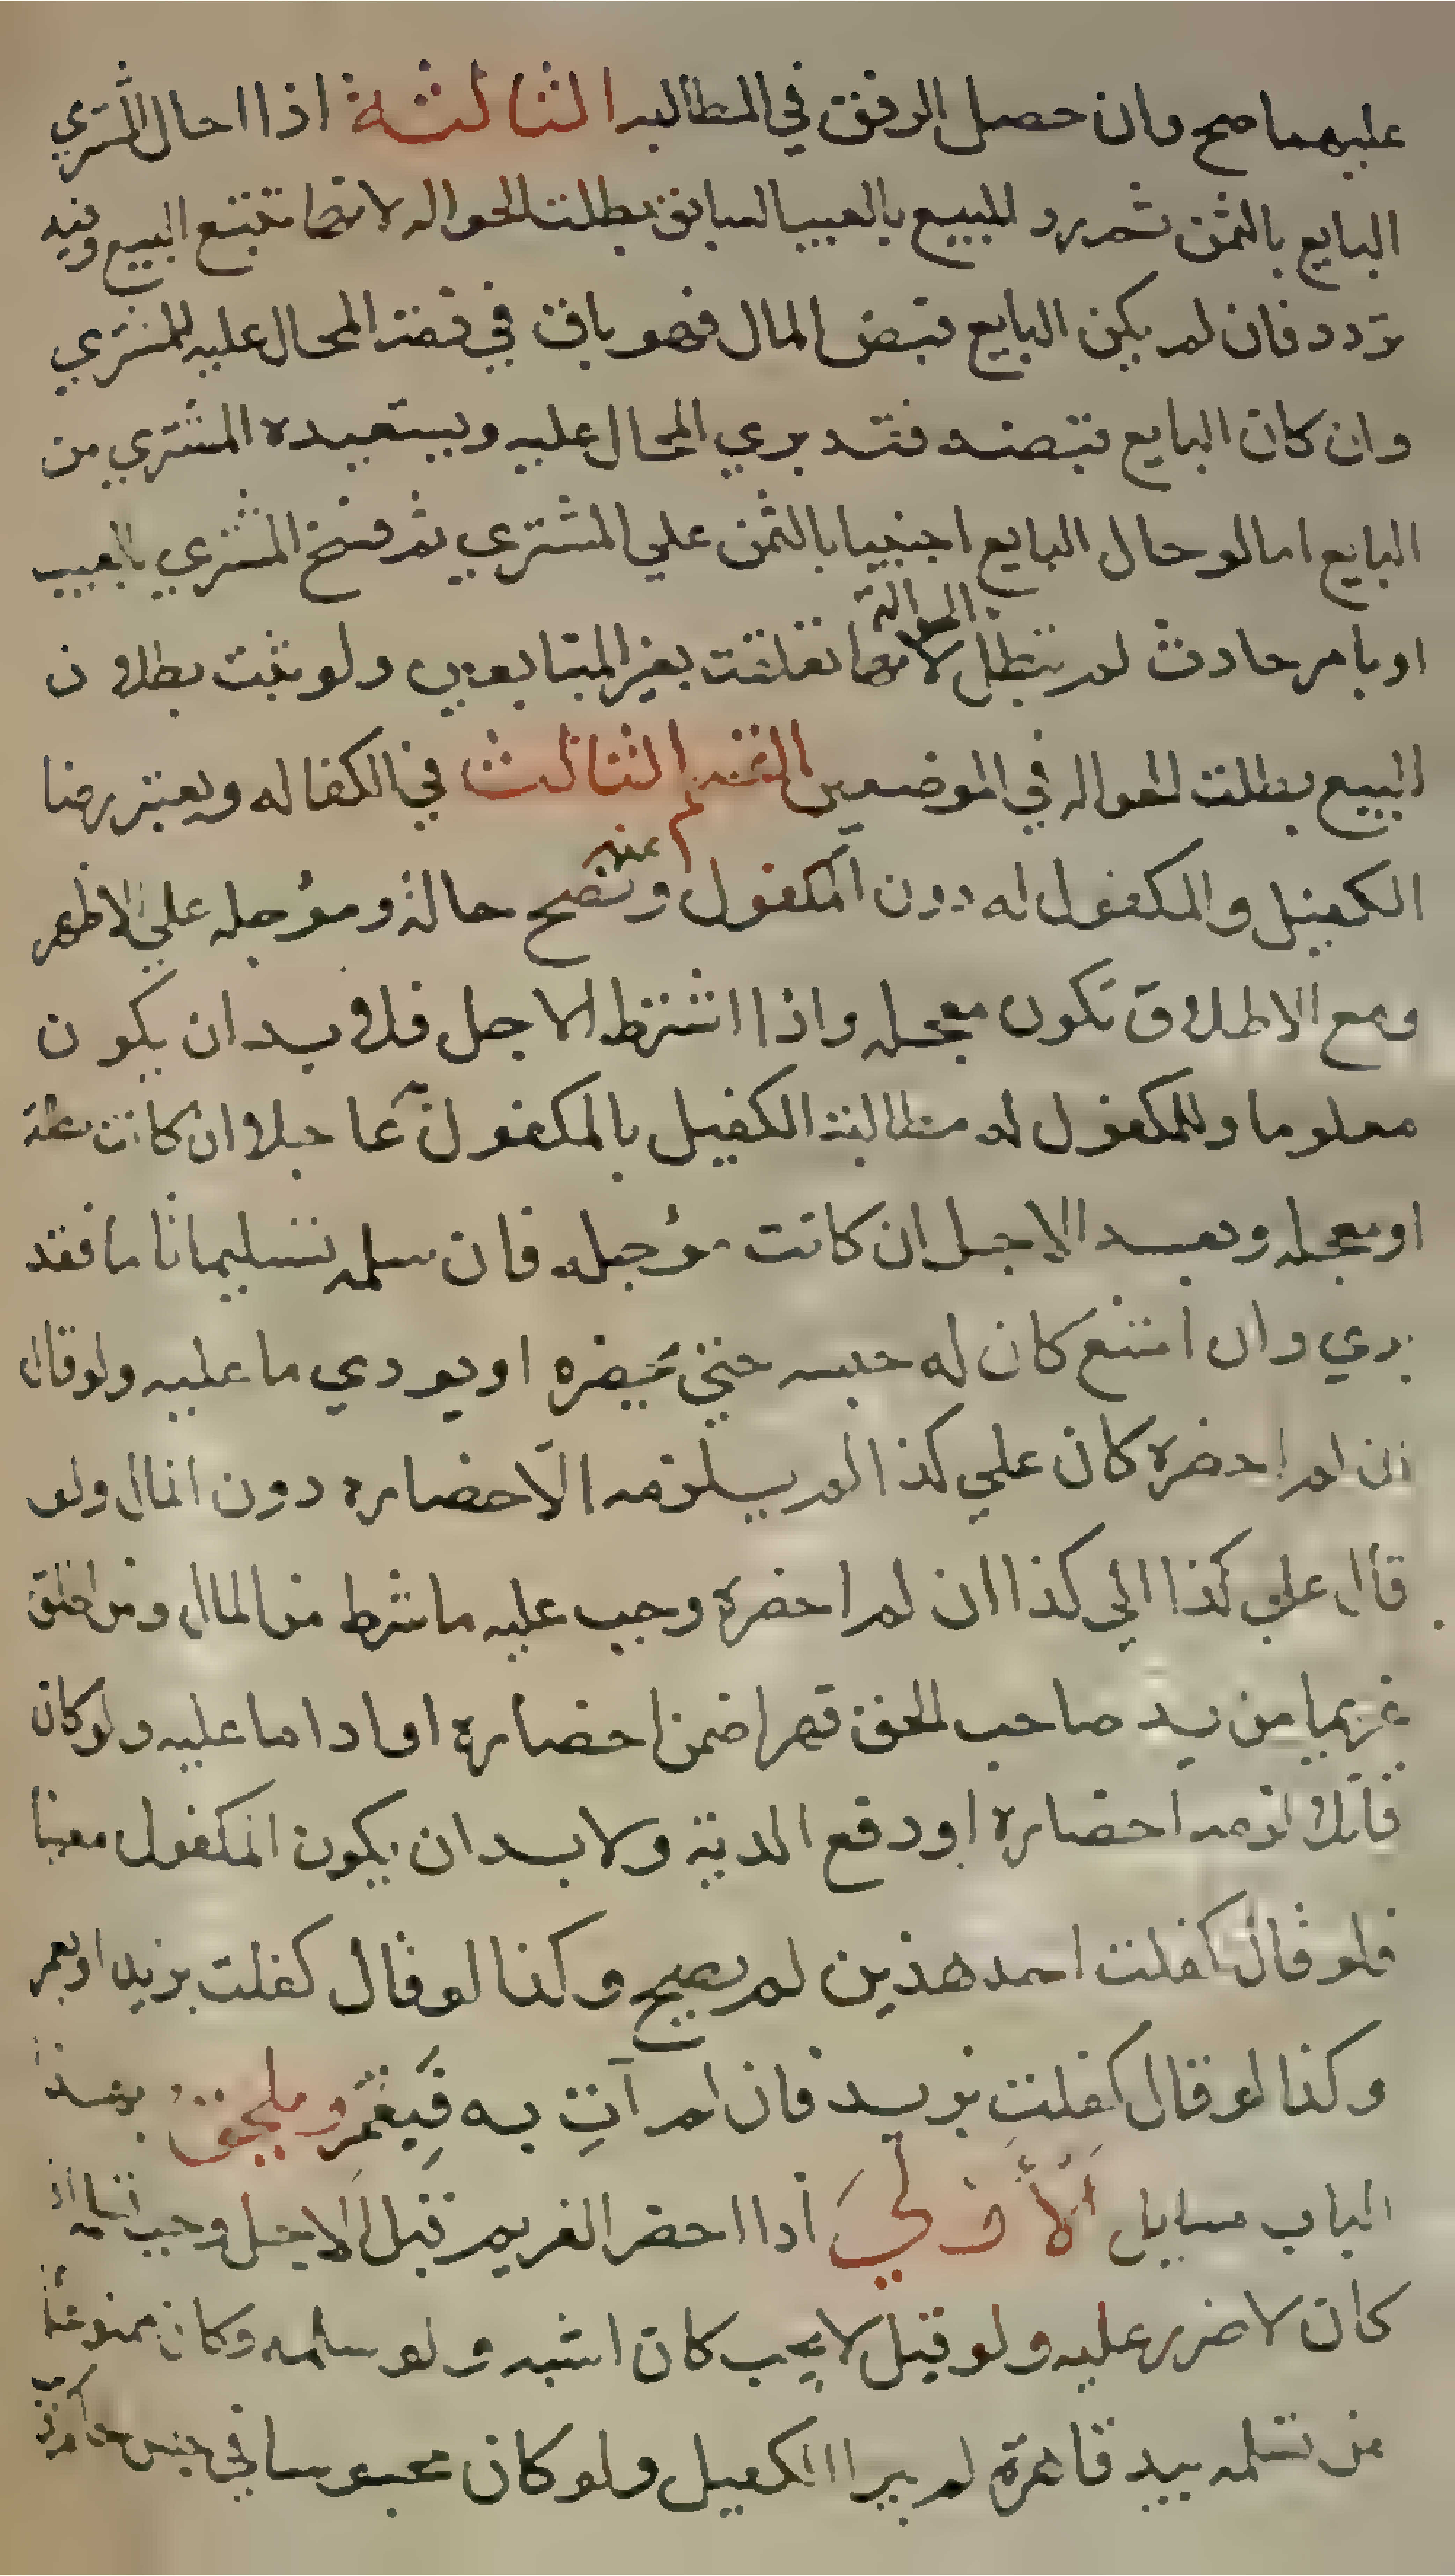 عليهما صح وان حصل الرفق في المطالبه الثالثة اذا احال المشتري
البايع بالثمن ثم رد المبيع بالعيب السابق بطلت الحواله لانها تتبع البيع وفيه
تردد فان لم يكن البايع قبض المال فهو باق في ذمة المحال عليه للمشتري
وان كان البايع قبضه فقد بري المحال عليه ويستعيده المشتري من
البايع امالو حال البايع اجنبيا بالثمن علي المشتري ثم فسخ المشتري بالعيب
او بامر حادث لم تبطل لانها تعلقت بغير المتبايعين ولو ثبت بطلان
البيع بطلت الحواله في الموضعين القسم الثالث في الكفاله ويعتبر رضا
الكفيل والمكفول له دون المكفول عنه وتصح حالة ومؤجله علي الاظهر
ومع الاطلاق تكون معجله واذا اشترط الاجل فلا بد ان يكون
معلوما وللمكفول له مطالبة الكفيل بالمكفول عاجلا ان كانت مطلقة
او معجله وبعد الاجل ان كانت مؤجله فان سلمه تسليما تاما فقد
بري وان امتنع كان له حبسه حتي يحضره او يودي ما عليه ولو قال
ان لم احضره كان علي كذا لم يلزمه الا احضاره دون المال ولو
قال علي كذا الي كذا ان لم احضره وجب عليه ما شرط من المال ومن اطلق
غريما من يد صاحب الحق قهرا ضمن احضاره او ادا ما عليه ولو كان
قاتلا لزمه احضاره او دفع الدية ولا بد ان يكون المكفول معينا
فلو قال كفلت احد هذين لم يصح وكذا لو قال كفلت بزيد او بعمر
وكذا لو قال كفلت بزيد فان لم آت به فبعمرو ويلحق بهذا
الباب مسايل الأولي اذا احضر الغريم قبل الاجل وجب تسليمه اذا
كان لا ضرر عليه ولو قيل لا يجب كان اشبه ولو سلمه وكان ممنوعا
من تسلمه بيد قاهرة لم يبرا الكفيل ولو كان محبوسا في حبس